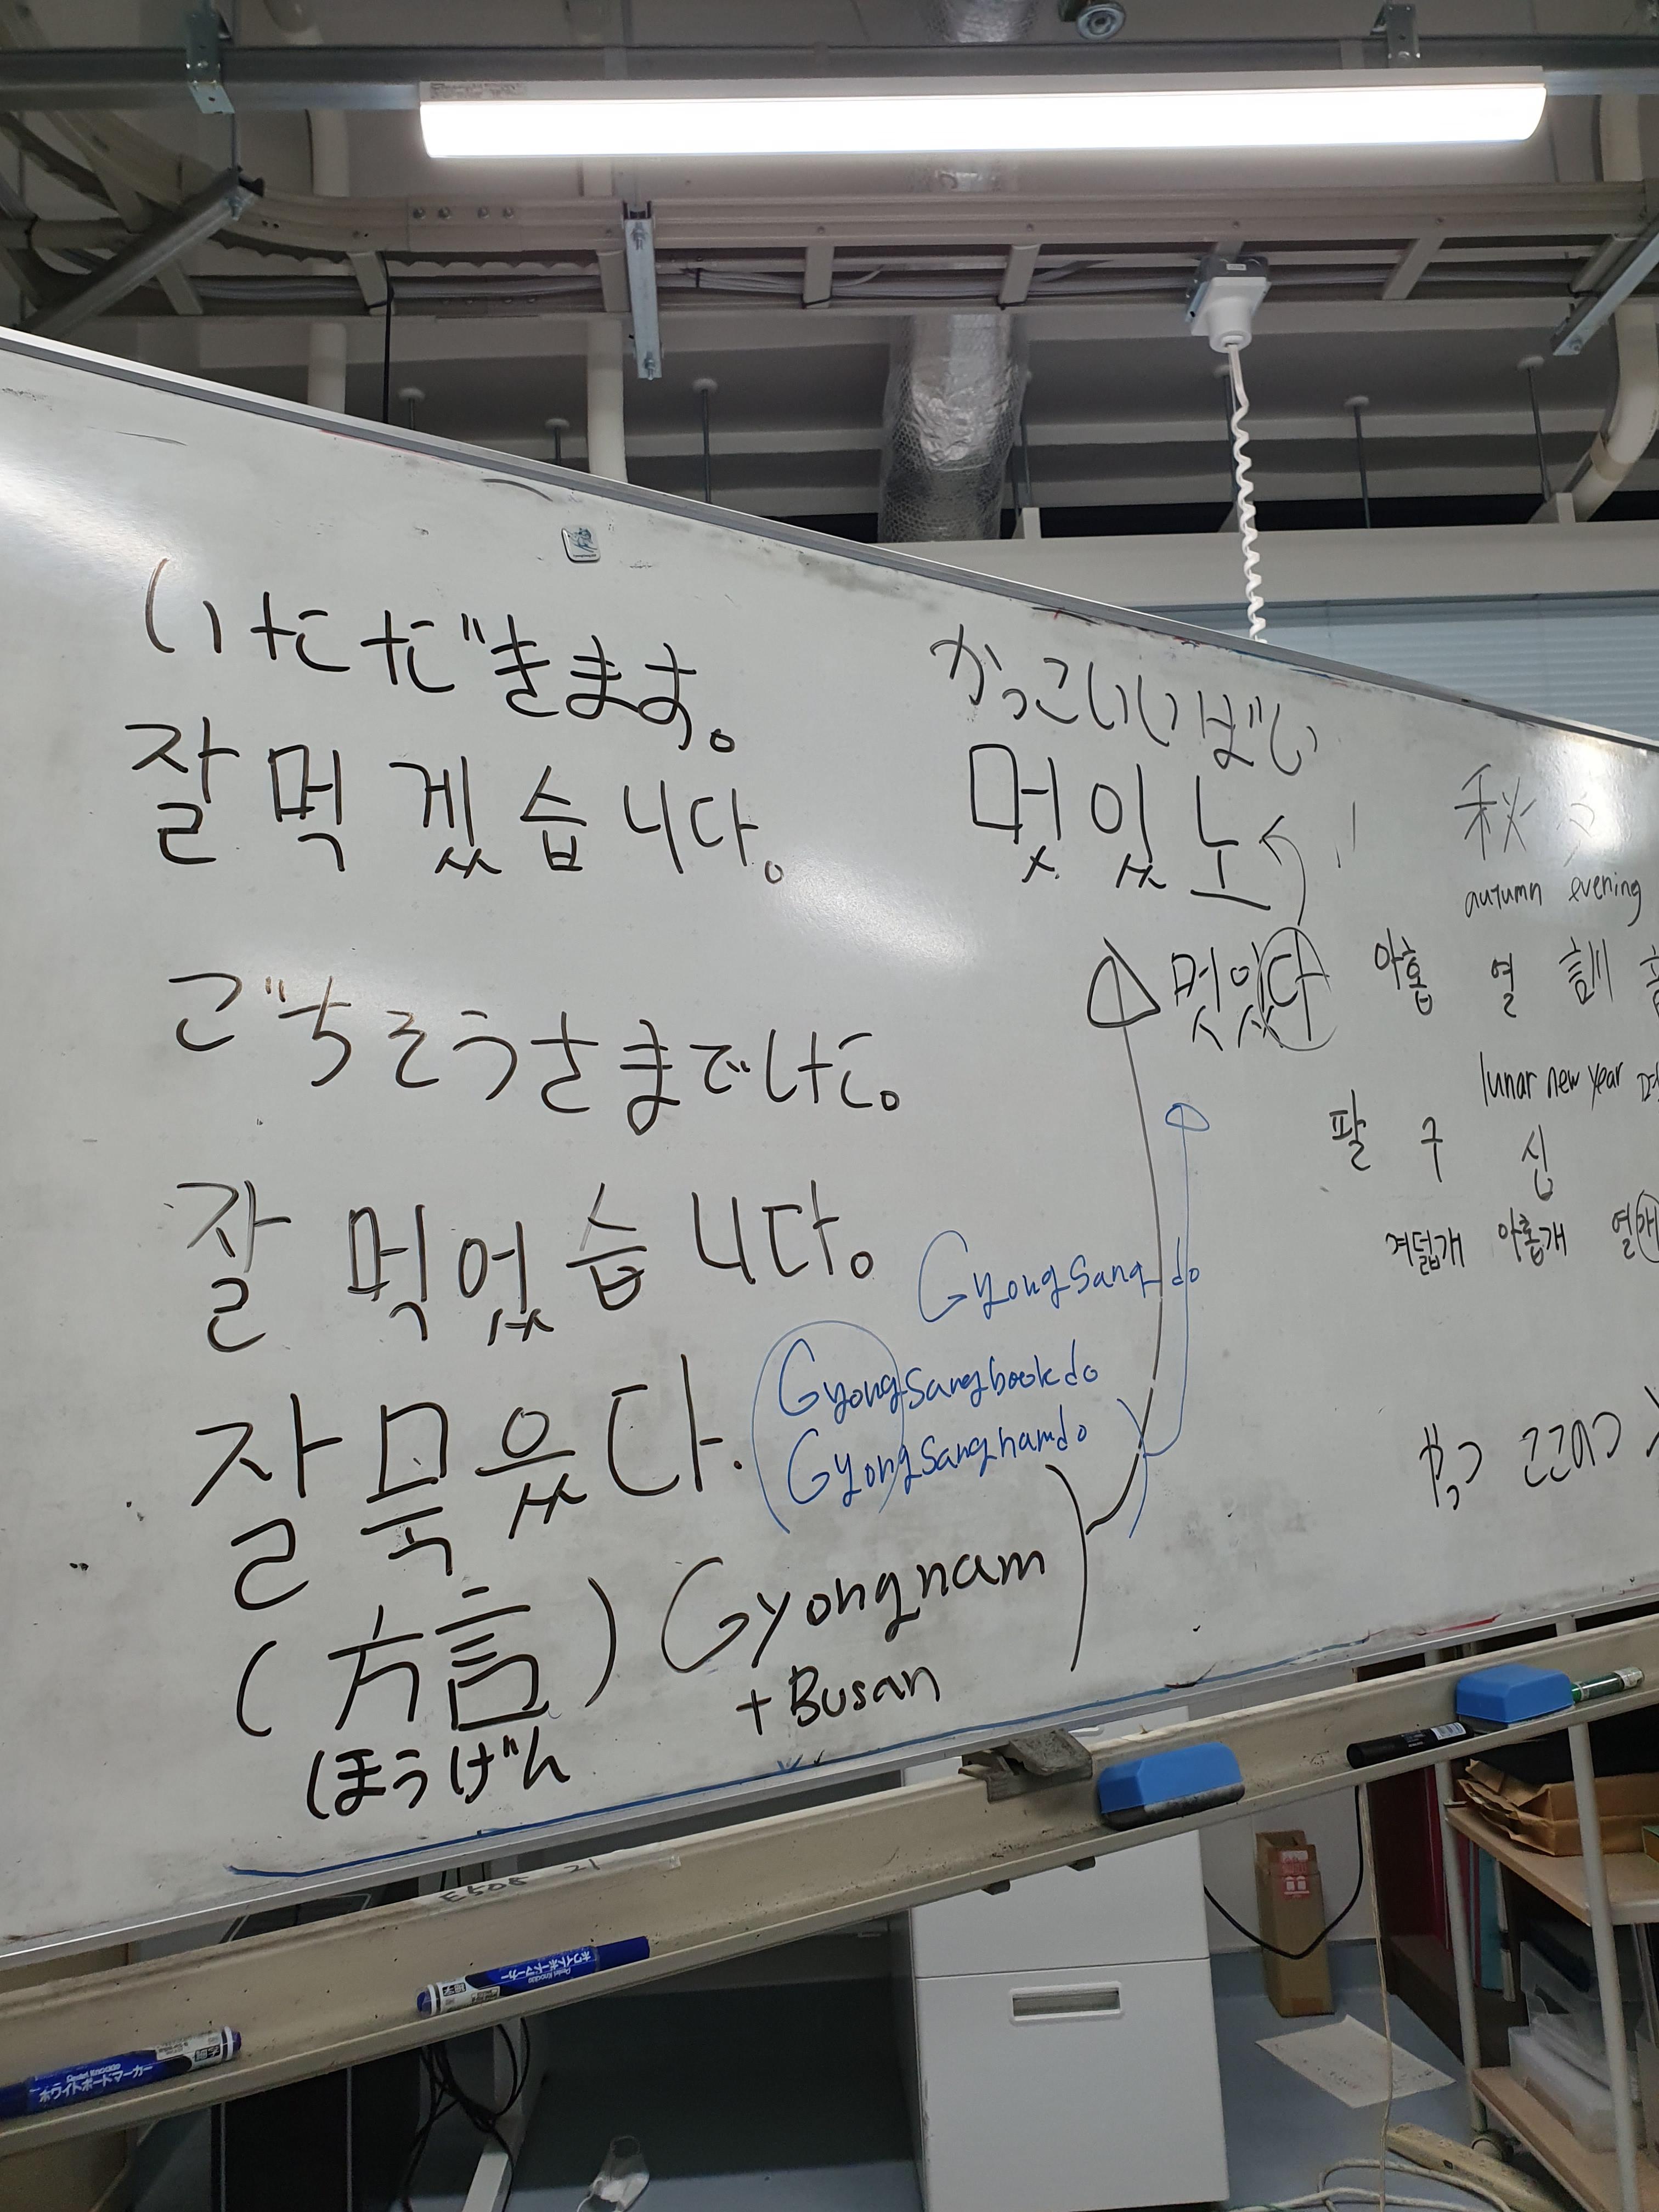 いただきます。
잘 먹겠습니다。
ごちそうさまでした。
잘 먹었습니다。
잘 묵읐다.
(方言)
ほうげん
Gyongsang do
Gyongsangbookdo
Gyongsangnamdo
Gyongnam
+Busan
かっこいいばい
멋있노
멋있다
秋
autumn evening
아홉 열 訓 音
lunar new year
팔 구 십
겨덟개 아홉개 열개
かっ
E505 21
ホワイトボードマーカー
ホワイトボードマーカー